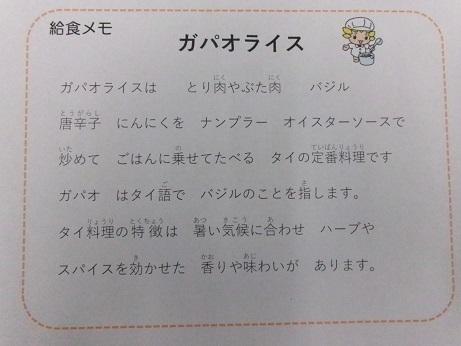 給食メモ
ガパオライス
ガパオライスは　とり肉やぶた肉　バジル
唐辛子　にんにくを　ナンプラー　オイスターソースで
炒めて　ごはんに乗せてたべる　タイの定番料理です
ガパオ　はタイ語で　バジルのことを指します。
タイ料理の特徴は　暑い気候に合わせ　ハーブや
スパイスを効かせた　香りや味わいが　あります。